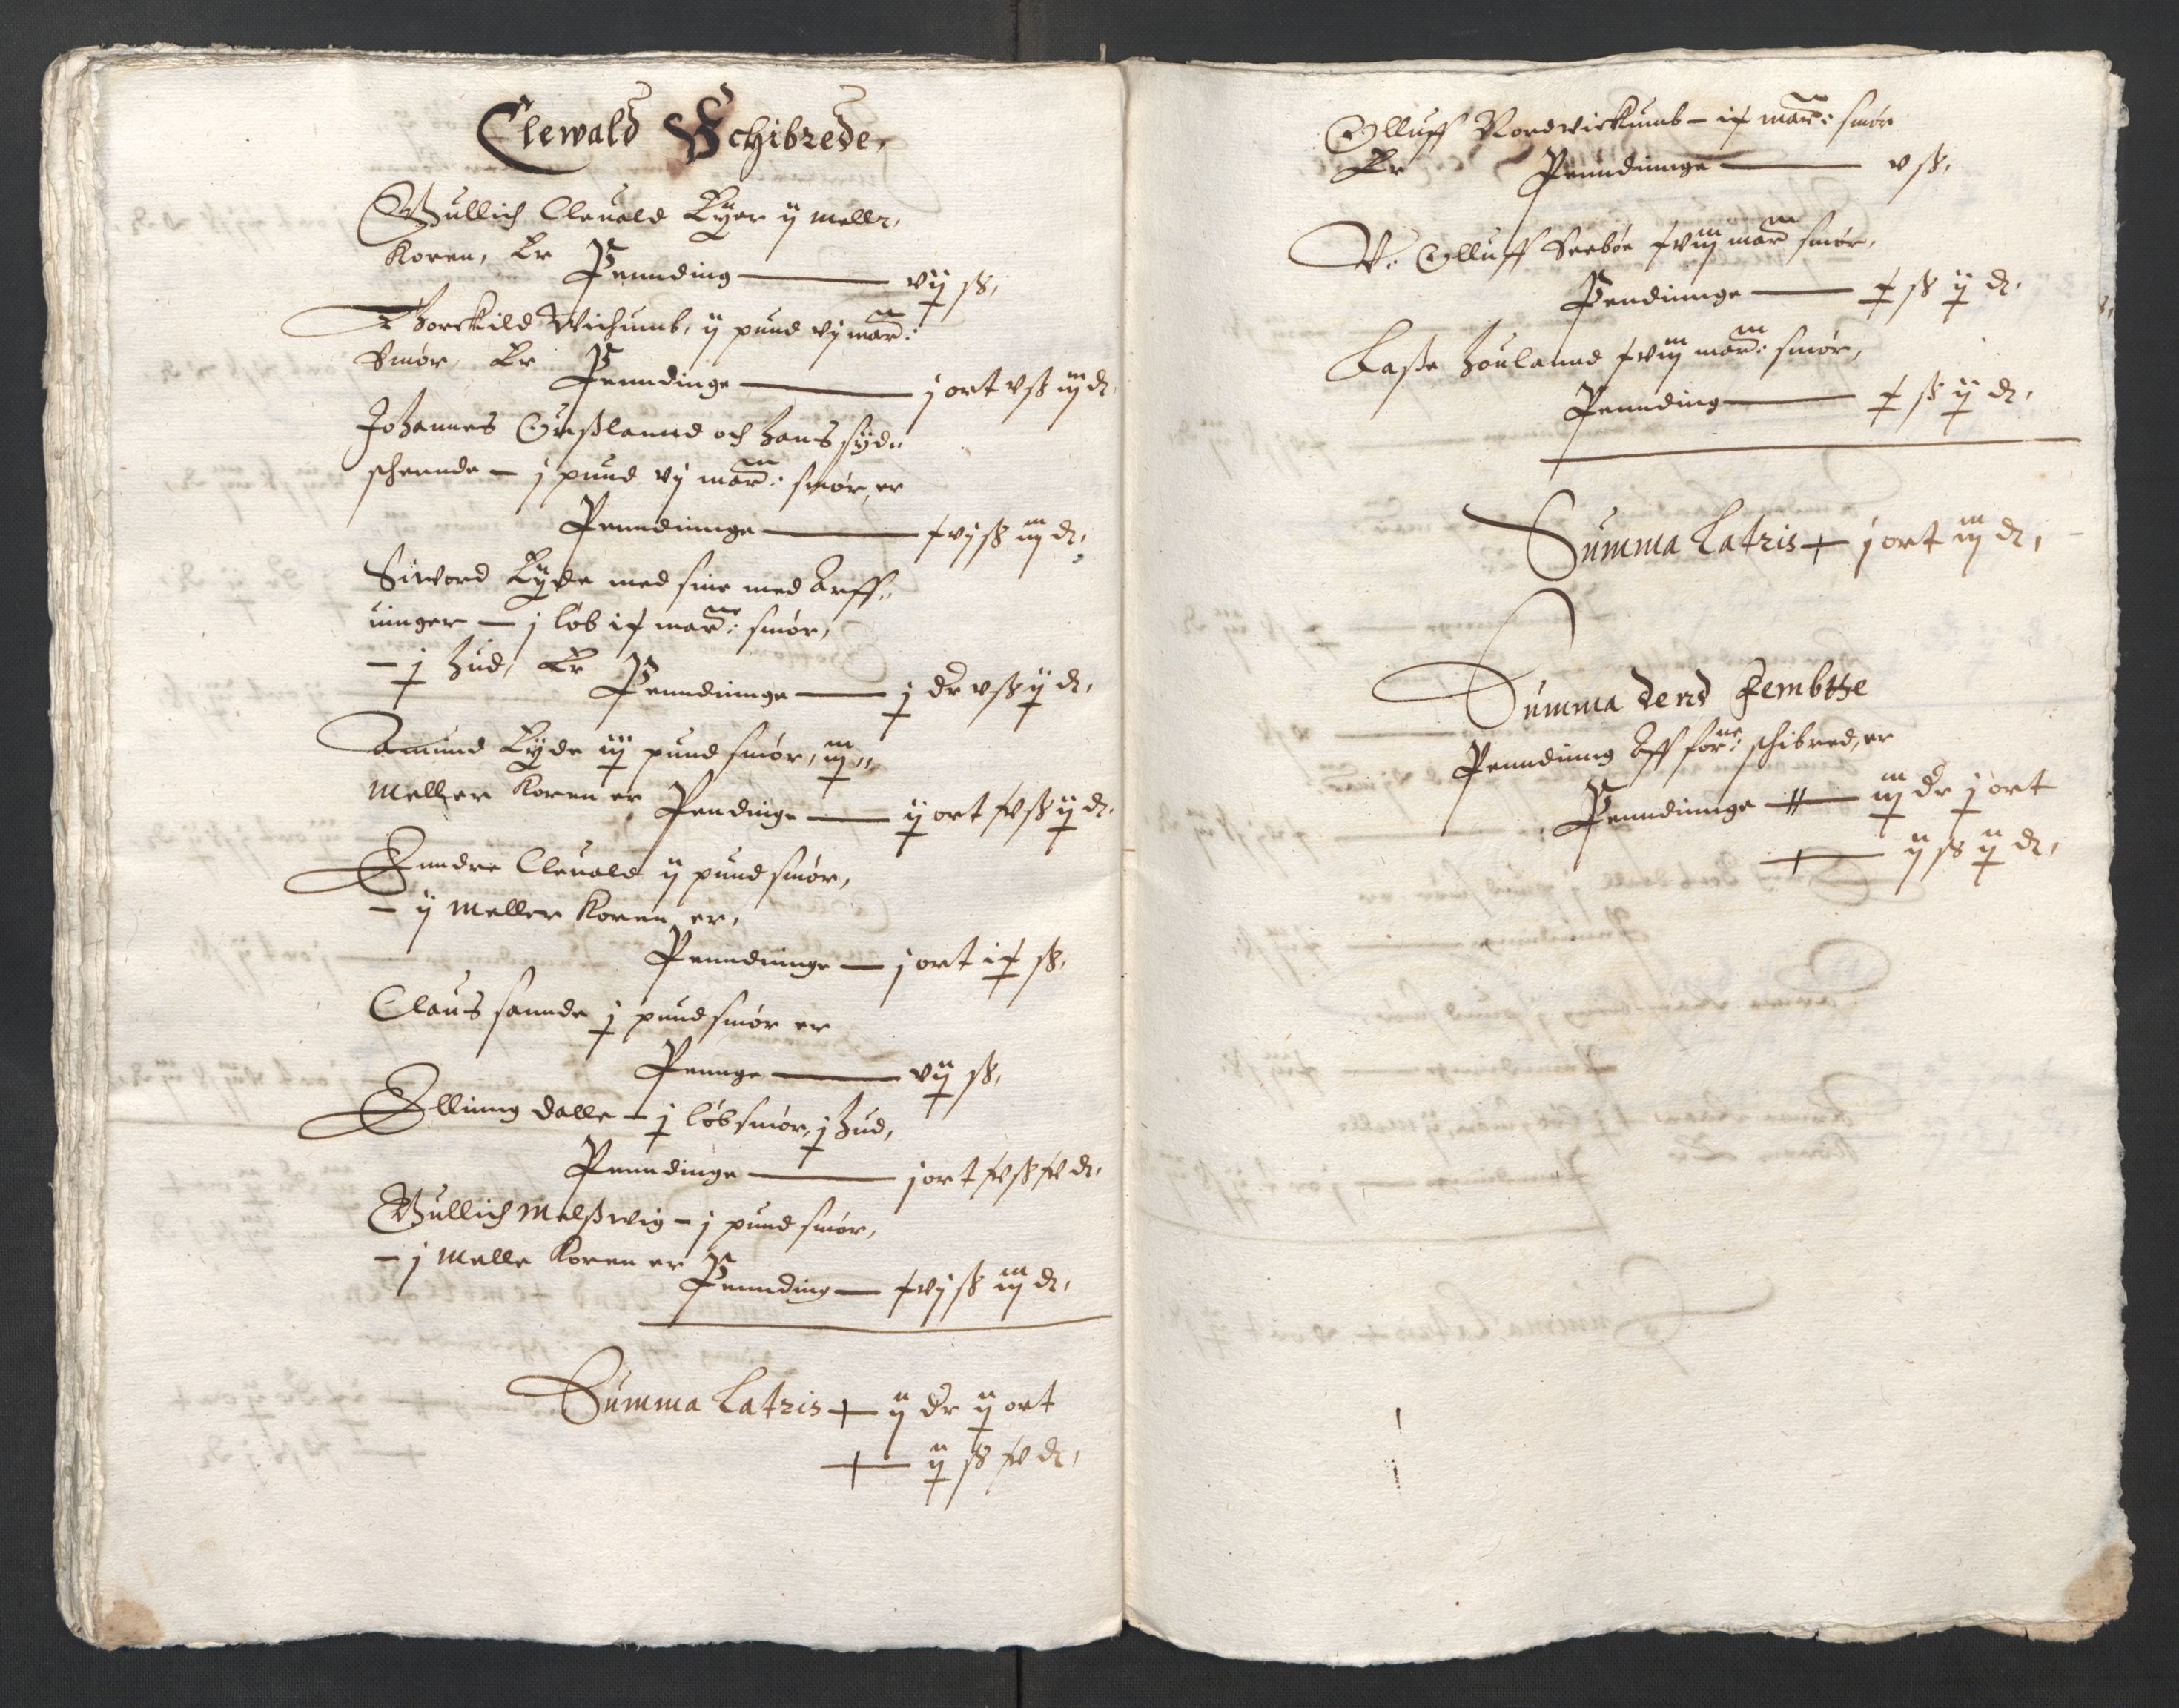 Clewald Schibrede,
Gullich Cleuald Eÿer ij meller
Koren, Er
Pennding — vij ß,
Thorckild Wichumb, ij pund vj mar:
Smør, Er
Penndinge — j ort v ß iij d,
Johannes Grøßlannd och hans syd„
schennde – j pund vj mar: smør, er
Penndinnge — xvj ß iij d,
Siword Eÿde med sine med Arff„
uinger — j lob ix mar: smør,
– j hud, Er
Penndinnge — j dr v ß ij d,
Amund Eÿde iij pund smør, iij„
Meller Koren er
Pendinge — ij ort xv ß ij d,
Enndre Cleuald ij pund smør,
– ij Meller Koren er,
Penndinnge — j ort ix ß,
Claus sannde j pund smør er
Pennge — vij ß,
Ellinng dalle – j løb smør, j hud,
Penndinge — j ort xv ß xv d,
Gullich Melßwig – j pund smør,
– j Melle Koren er
Pennding — xvj ß iij d,
Summa Latris — ij dr ij ort
— ij ß xv d,
Olluff Nordvickumb – ix mar: smør
Er Penndinnge — v ß,
N: Olluff Seebøe xviij mar smør,
Pendinnge — x ß ij d,
Laße Houlannd xviij mar: smør,
Pennding — x ß ij d,
Summa Latris — j ort iij d,
Summa dend Fembtte
Penndinng Aff forne: schibred, er
Penndinnge — iij dr j ort
— ij ß ij d,